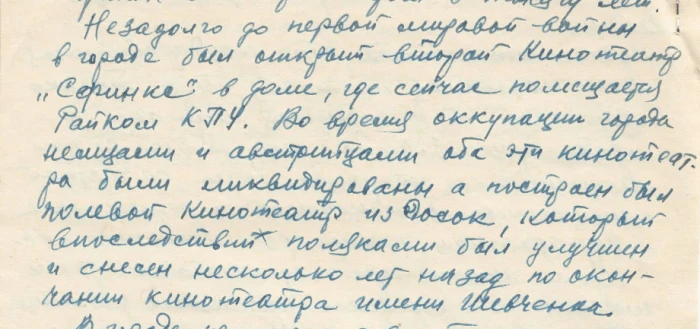 Незадолго до первой мировой войны
в городе был открыт второй Кинотеатр
„Сфинкс" в доме, где сейчас помещается
Райком КПУ. Во время оккупации города
немцами и австрийцами оба эти кинотеат-
ра были ликвидированы а построен был
полевой Кинотеатр из досок, который
впоследствии поляками был улучшен
и снесен несколько лет назад по окон-
чании кинотеатра имени Шевченка.